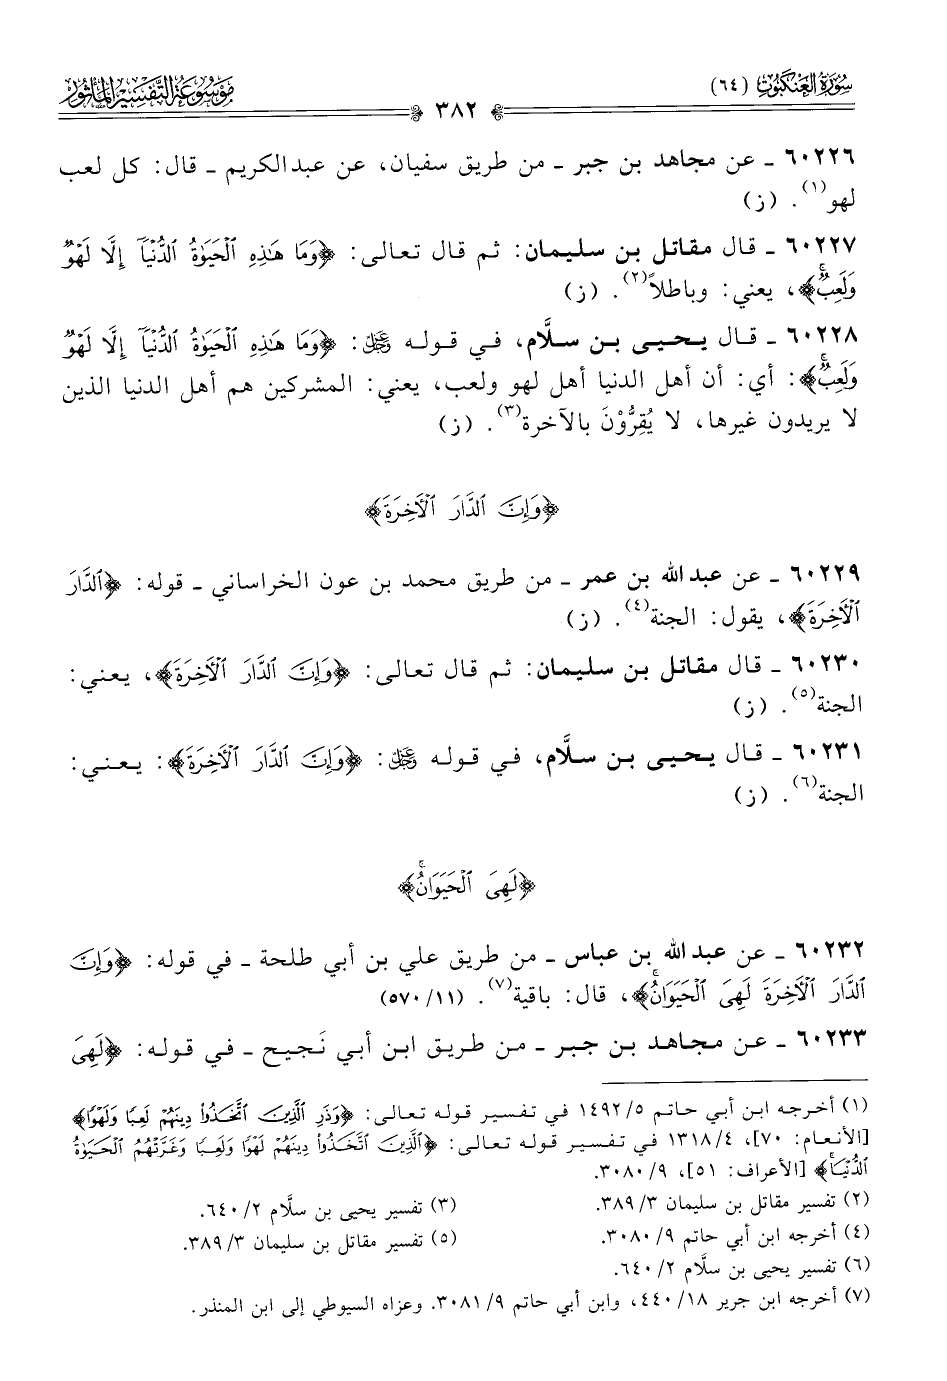 سُورَةُ العَنكَبُوتِ (٦٤)
٣٨٢
مَوْسُوعَةُ التَّفْسِيْرِ المَأْثُور
٦٠٢٢٦ ـ عن مجاهد بن جبر ـ من طريق سفيان، عن عبدالكريم ـ قال: كل لعب
لهو(١). (ز)
٦٠٢٢٧ ـ قال مقاتل بن سليمان: ثم قال تعالى: ﴿وَمَا هَٰذِهِ ٱلْحَيَوٰةُ ٱلدُّنْيَآ إِلَّا لَهْوٌ
وَلَعِبٌۚ﴾، يعني: وباطلاً(٢). (ز)
٦٠٢٢٨ ـ قال يحيى بن سلَّام، في قوله ﷿: ﴿وَمَا هَٰذِهِ ٱلْحَيَوٰةُ ٱلدُّنْيَآ إِلَّا لَهْوٌ
وَلَعِبٌۚ﴾: أي: أن أهل الدنيا أهل لهو ولعب، يعني: المشركين هم أهل الدنيا الذين
لا يريدون غيرها، لا يُقِرُّوْنَ بالآخرة(٣). (ز)
﴿وَإِنَّ ٱلدَّارَ ٱلْأَخِرَةَ﴾
٦٠٢٢٩ ـ عن عبدالله بن عمر ـ من طريق محمد بن عون الخراساني ـ قوله: ﴿ٱلدَّارَ
ٱلْأَخِرَةَ﴾، يقول: الجنة(٤). (ز)
٦٠٢٣٠ ـ قال مقاتل بن سليمان: ثم قال تعالى: ﴿وَإِنَّ ٱلدَّارَ ٱلْأَخِرَةَ﴾، يعني:
الجنة(٥). (ز)
٦٠٢٣١ ـ قال يحيى بن سلَّام، في قوله ﷿: ﴿وَإِنَّ ٱلدَّارَ ٱلْأَخِرَةَ﴾: يعني:
الجنة(٦). (ز)
﴿لَهِىَ ٱلْحَيَوَانُۚ﴾
٦٠٢٣٢ ـ عن عبدالله بن عباس ـ من طريق علي بن أبي طلحة ـ في قوله: ﴿وَإِنَّ
ٱلدَّارَ ٱلْأَخِرَةَ لَهِىَ ٱلْحَيَوَانُۚ﴾، قال: باقية(٧). (١١/ ٥٧٠)
٦٠٢٣٣ ـ عن مجاهد بن جبر ـ من طريق ابن أبي نَجيح ـ في قوله: ﴿لَهِىَ
(١) أخرجه ابن أبي حاتم ٥/ ١٤٩٢ في تفسير قوله تعالى: ﴿وَذَرِ ٱلَّذِينَ ٱتَّخَذُواْ دِينَهُمْ لَعِبًا وَلَهْوًا﴾
[الأنعام: ٧٠]، ٤/ ١٣١٨ في تفسير قوله تعالى: ﴿ٱلَّذِينَ ٱتَّخَذُواْ دِينَهُمْ لَهْوًا وَلَعِبًا وَغَرَّتْهُمُ ٱلْحَيَوٰةُ
ٱلدُّنْيَاۚ﴾ [الأعراف: ٥١]، ٩/ ٣٠٨٠.
(٢) تفسير مقاتل بن سليمان ٣/ ٣٨٩.
(٣) تفسير يحيى بن سلَّام ٢/ ٦٤٠.
(٤) أخرجه ابن أبي حاتم ٩/ ٣٠٨٠.
(٥) تفسير مقاتل بن سليمان ٣/ ٣٨٩.
(٦) تفسير يحيى بن سلَّام ٢/ ٦٤٠.
(٧) أخرجه ابن جرير ١٨/ ٤٤٠، وابن أبي حاتم ٩/ ٣٠٨١. وعزاه السيوطي إلى ابن المنذر.